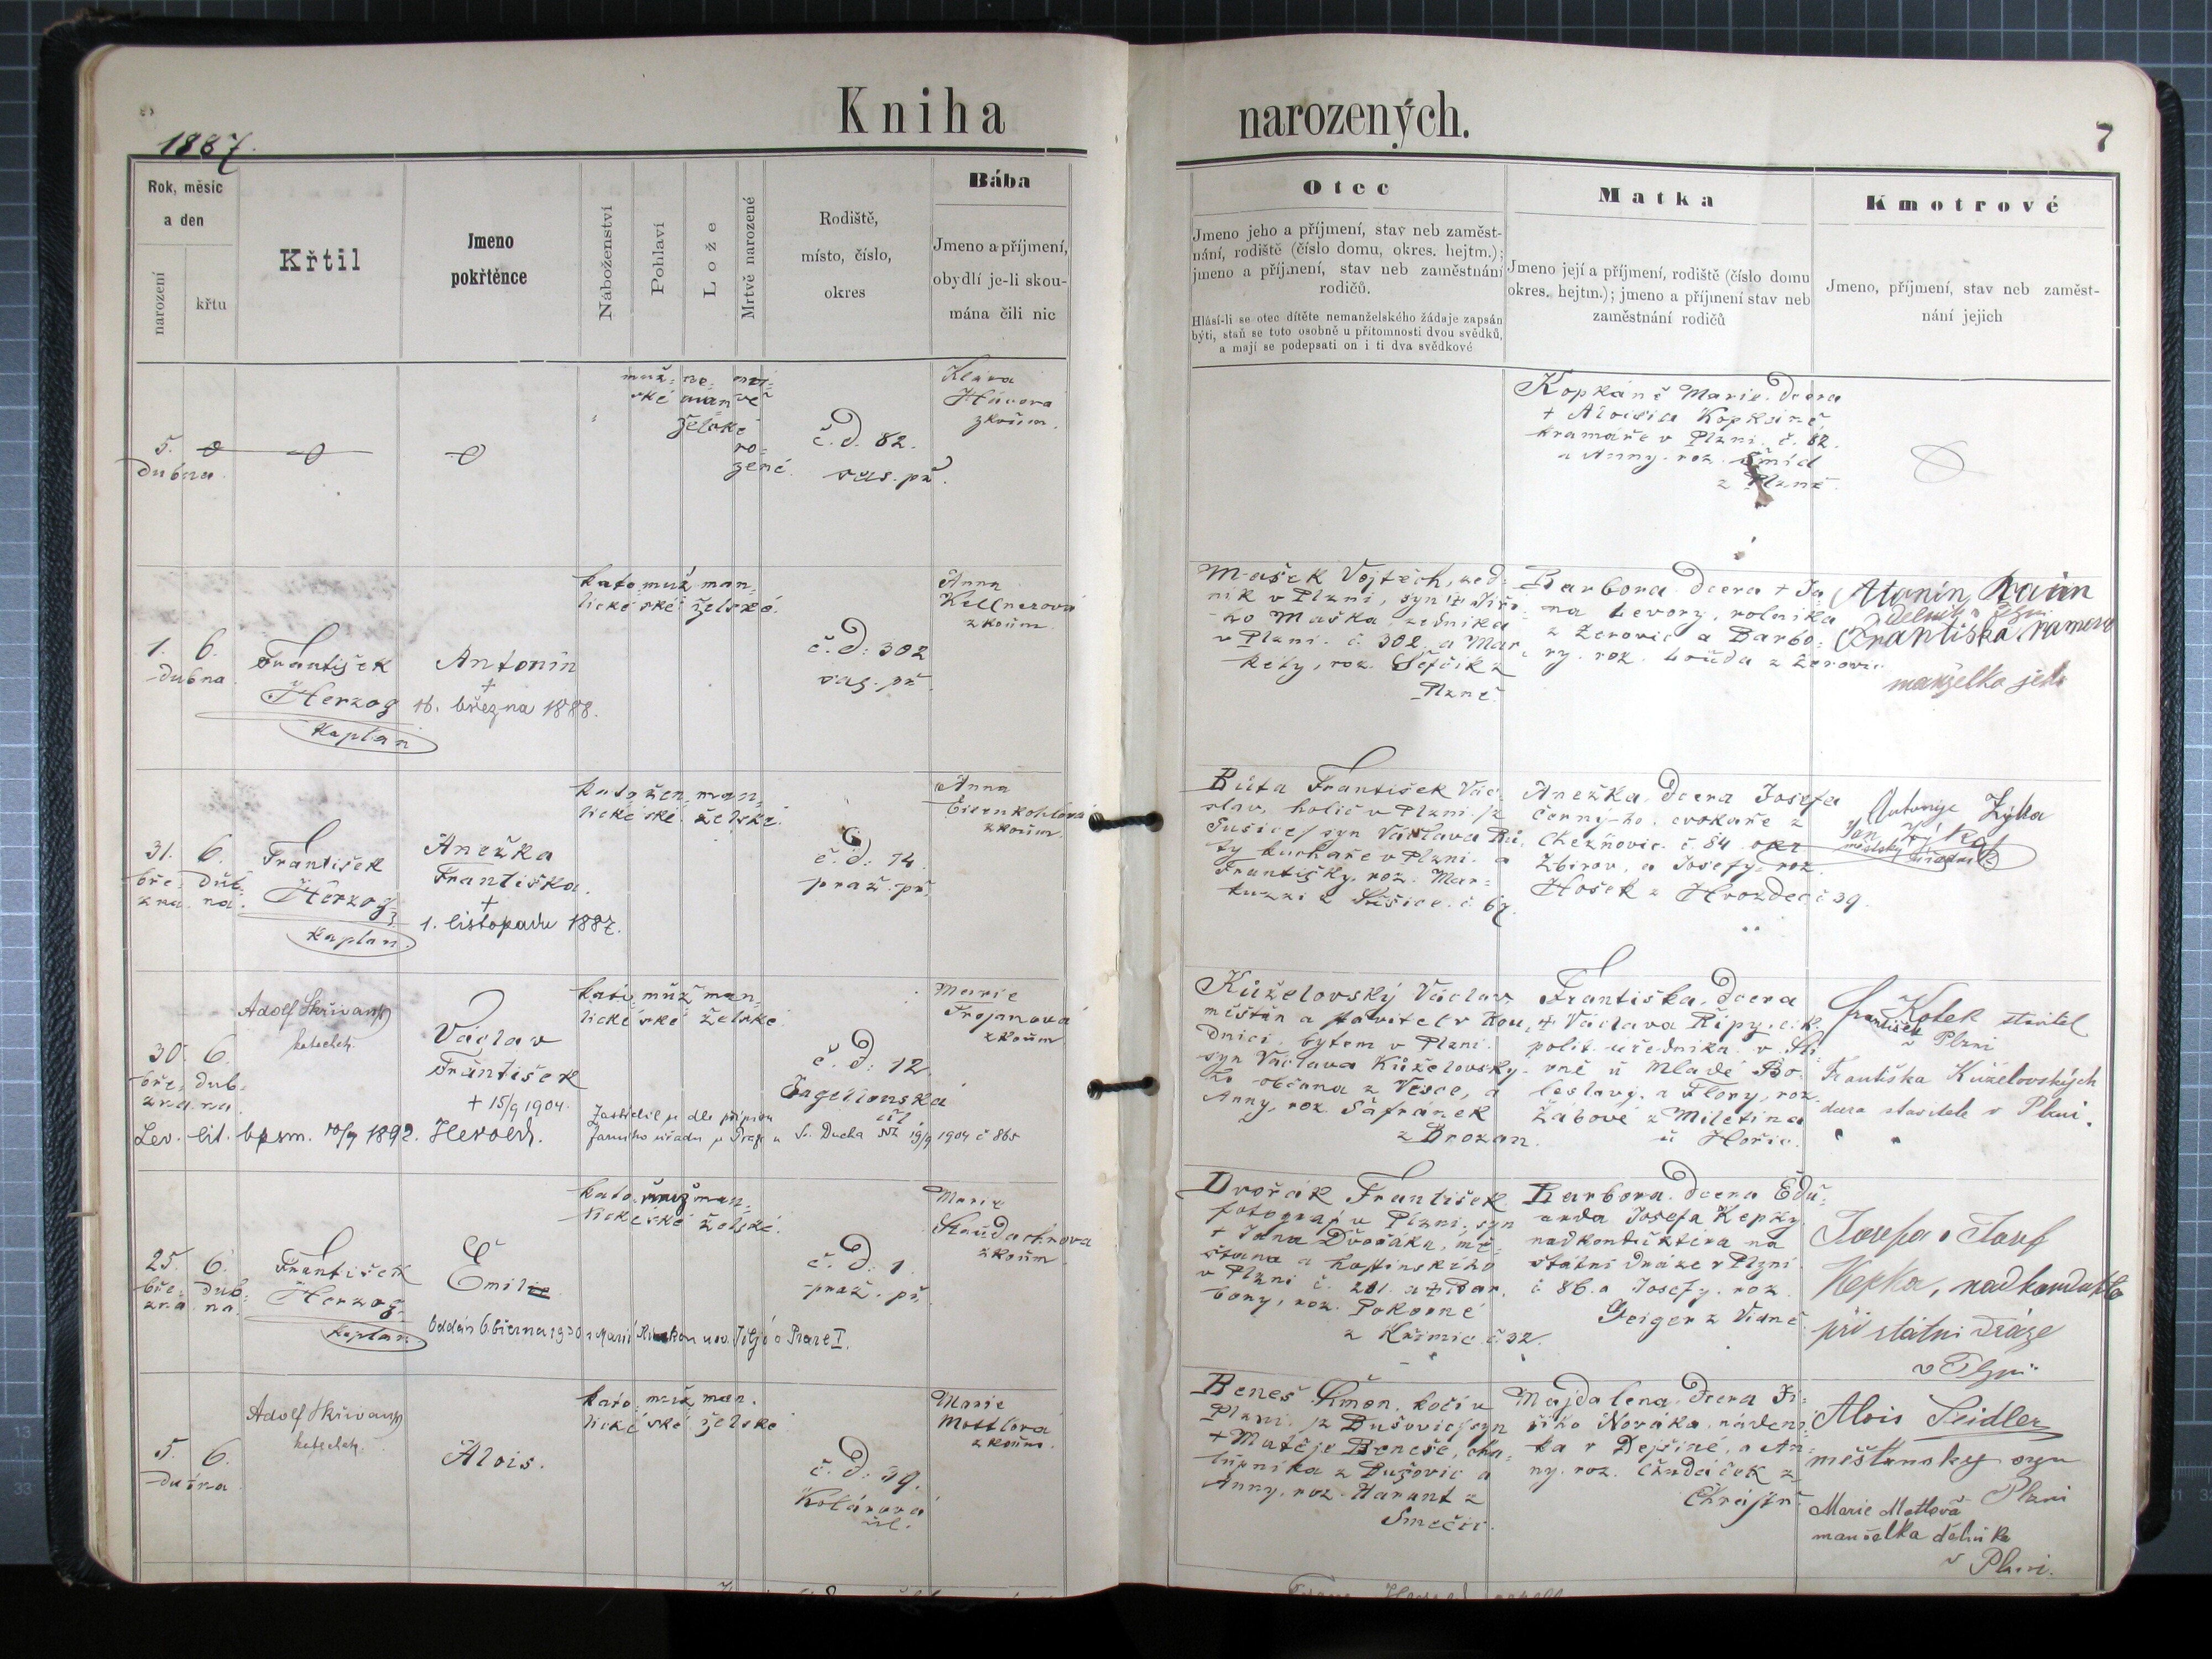 Kniha narozených.
1887.
7
Rok, měsíc
a den
narození
křtu
Křtil
Jmeno
pokřtěnce
Náboženství
Pohlaví
Lože
Mrtvě narozené
Rodiště,
místo, číslo,
okres
Bába
Jmeno a příjmení,
obydlí je-li skou-
mána čili nic
Otec
Jmeno jeho a příjmení, stav neb zaměst-
nání, rodiště (číslo domu, okres. hejtm.);
jmeno a příjmení, stav neb zaměstnání
rodičů.
Hlásí-li se otec dítěte nemanželského žádaje zapsán
býti, staň se toto osobně u přítomnosti dvou svědků,
a mají se podepsati on i ti dva svědkové
Matka
Jmeno její a příjmení, rodiště (číslo domu
okres. hejtm.); jmeno a příjmení stav neb
zaměstnání rodičů
Kmotrové
Jmeno, příjmení, stav neb zaměst-
nání jejich
5.
dubna
muž-
ské
ne-
man
želské
mr-
tvě
ro-
zené.
č. d. 82.
sas. př.
Klára
Hávová
zkoum.
Kopkáně Marie. dcera
+ Aloisia Kopkáně
kramáře v Plzni. č. 82.
a Anny. roz. Šmíd
z Plzně.
1. 6.
dubna
František
Herzog
Kaplan
Antonín
+
16. března 1888.
kato muž man
lické ské želské.
č. d: 302
sas. př.
Anna
Kellnerová
zkoum.
Mašek Vojtěch, zed-
ník v Plzni, syn + Jiří-
ho Maška zedníka
v Plzni. č. 302. a Mar
kéty, roz. Šefčík z
Plzně.
Barbora dcera + Ja
na Levory, rolníka
z Žerovic a Barbo-
ry. roz. Louda z Žerovic.
Františka
manželka jeho
31. 6.
bře- dub-
zna. na.
František
Herzog
Kaplan.
Anežka
Františka.
+
1. listopadu 1887.
kato žen man
lické ské. želské.
č. d: 14.
praž. př.
Anna
zkoum.
Bůta František Vác-
slav, holič v Plzni /z
Sušice/ syn Václava Bů-
ty kuchaře v Plzni. a
Františky. roz. Mar-
kuzzi z Sušice. č. 67.
Anežka. dcera Josefa
Cheznovic. č. 54. okr
Zbirov, a Josefy. roz.
Hošek z Hrozdec č 39.
Antonye Zýka
Jan Zýka
městský úředník
30. 6.
bře- dub-
zna. na.
Adolf Skřivan
katecheta.
Václav
František
+ 15/9 1904.
kato muž man
lické ské želské
č. d. 12
Jagellonská
ul
Marie
Trojanová
zkoum
Lev. lit. bpsm. 10/9 1892. Herold.
Sv. Ducha 19/9 1904 č 865
Kůželovský Václav
měštín a stavitel v Hou
dnici, bytem v Plzni.
syn Václava Kůželovské-
ho občana z Vesce, a
Anny, roz. Šafránek
z Brozan.
Františka, dcera
+ Václava Řípy, c.k.
polit. úředníka. v
u Mladé Bo-
leslavy. a Flory, roz.
Žabové z Miletína
u Hořic.
František Kotek stavitel
v Plzni
Františka Kůželovských
dcera stavitele v Plzni.
25. 6.
bře- dub-
zna. na.
František
Herzog
Kaplan
Emil
kato. muž man
lické ské želské.
č. d. 1.
praž. př.
Marie
zkoum
Dvořák František
fotograf v Plzni. syn
+ Jana Dvořáka, mě-
šťana a hostinského
v Plzni č. 201. a + Bar
bory, roz. Pokorné
z Křimic č. 32.
Barbora. dcera Edu-
arda Josefa Kepky.
nadkonduktéra na
státní dráze v Plzni
č 86. a Josefy. roz.
Geiger z Vídně
Josefa a Josef
Kepka, nadkondukto
při státní dráze
v Plzni
5. 6.
dubna
Adolf Skřivan
katechet.
Alois.
kato. muž man.
lické ské želské
č. d: 39.
Kolárova
ul.
Marie
Mottlová
zkoum.
Beneš Šimon. kočí v
Plzni. /z Bušovic/ syn
+ Matěje Beneše, cha-
lupníka z Bušovic a
Anny. roz. Harant z
Smečic.
Majdalena. dcera Ji-
řího Nováka. nádení-
ka v Dejšině, a An-
ny. roz. Chudáček z
Alois Seidler
měšťanský syn
Plzni
Marie Mottlová
manželka dělníka
v Plzni.